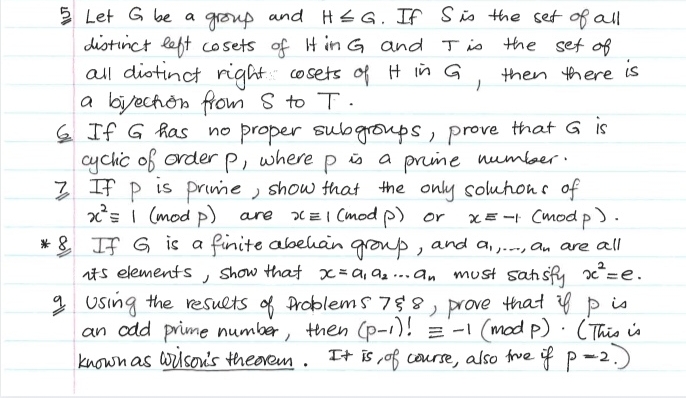 5 Let G be a group and H ≤ G. If S is the set of all
distinct left cosets of H in G and T is the set of
all distinct right cosets of H in G, then there is
a bijection from S to T.
6 If G has no proper subgroups, prove that G is
cyclic of order p, where p is a prime number.
7 If p is prime, show that the only solutions of
x² ≡ 1 (mod p) are x ≡ 1 (mod p) or x ≡ -1 (mod p).
* 8 If G is a finite abelian group, and a₁,..., aₙ are all
its elements, show that x = a₁ a₂ ... aₙ must satisfy x² = e.
9 Using the results of Problems 7 & 8, prove that if p is
an odd prime number, then (p-1)! ≡ -1 (mod p). (This is
known as Wilson's theorem. It is, of course, also true if p = 2.)